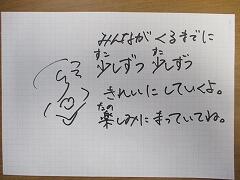 みんなが くるまでに
少しずつ 少しずつ
きれいにしていくよ。
楽しみに まっていてね。